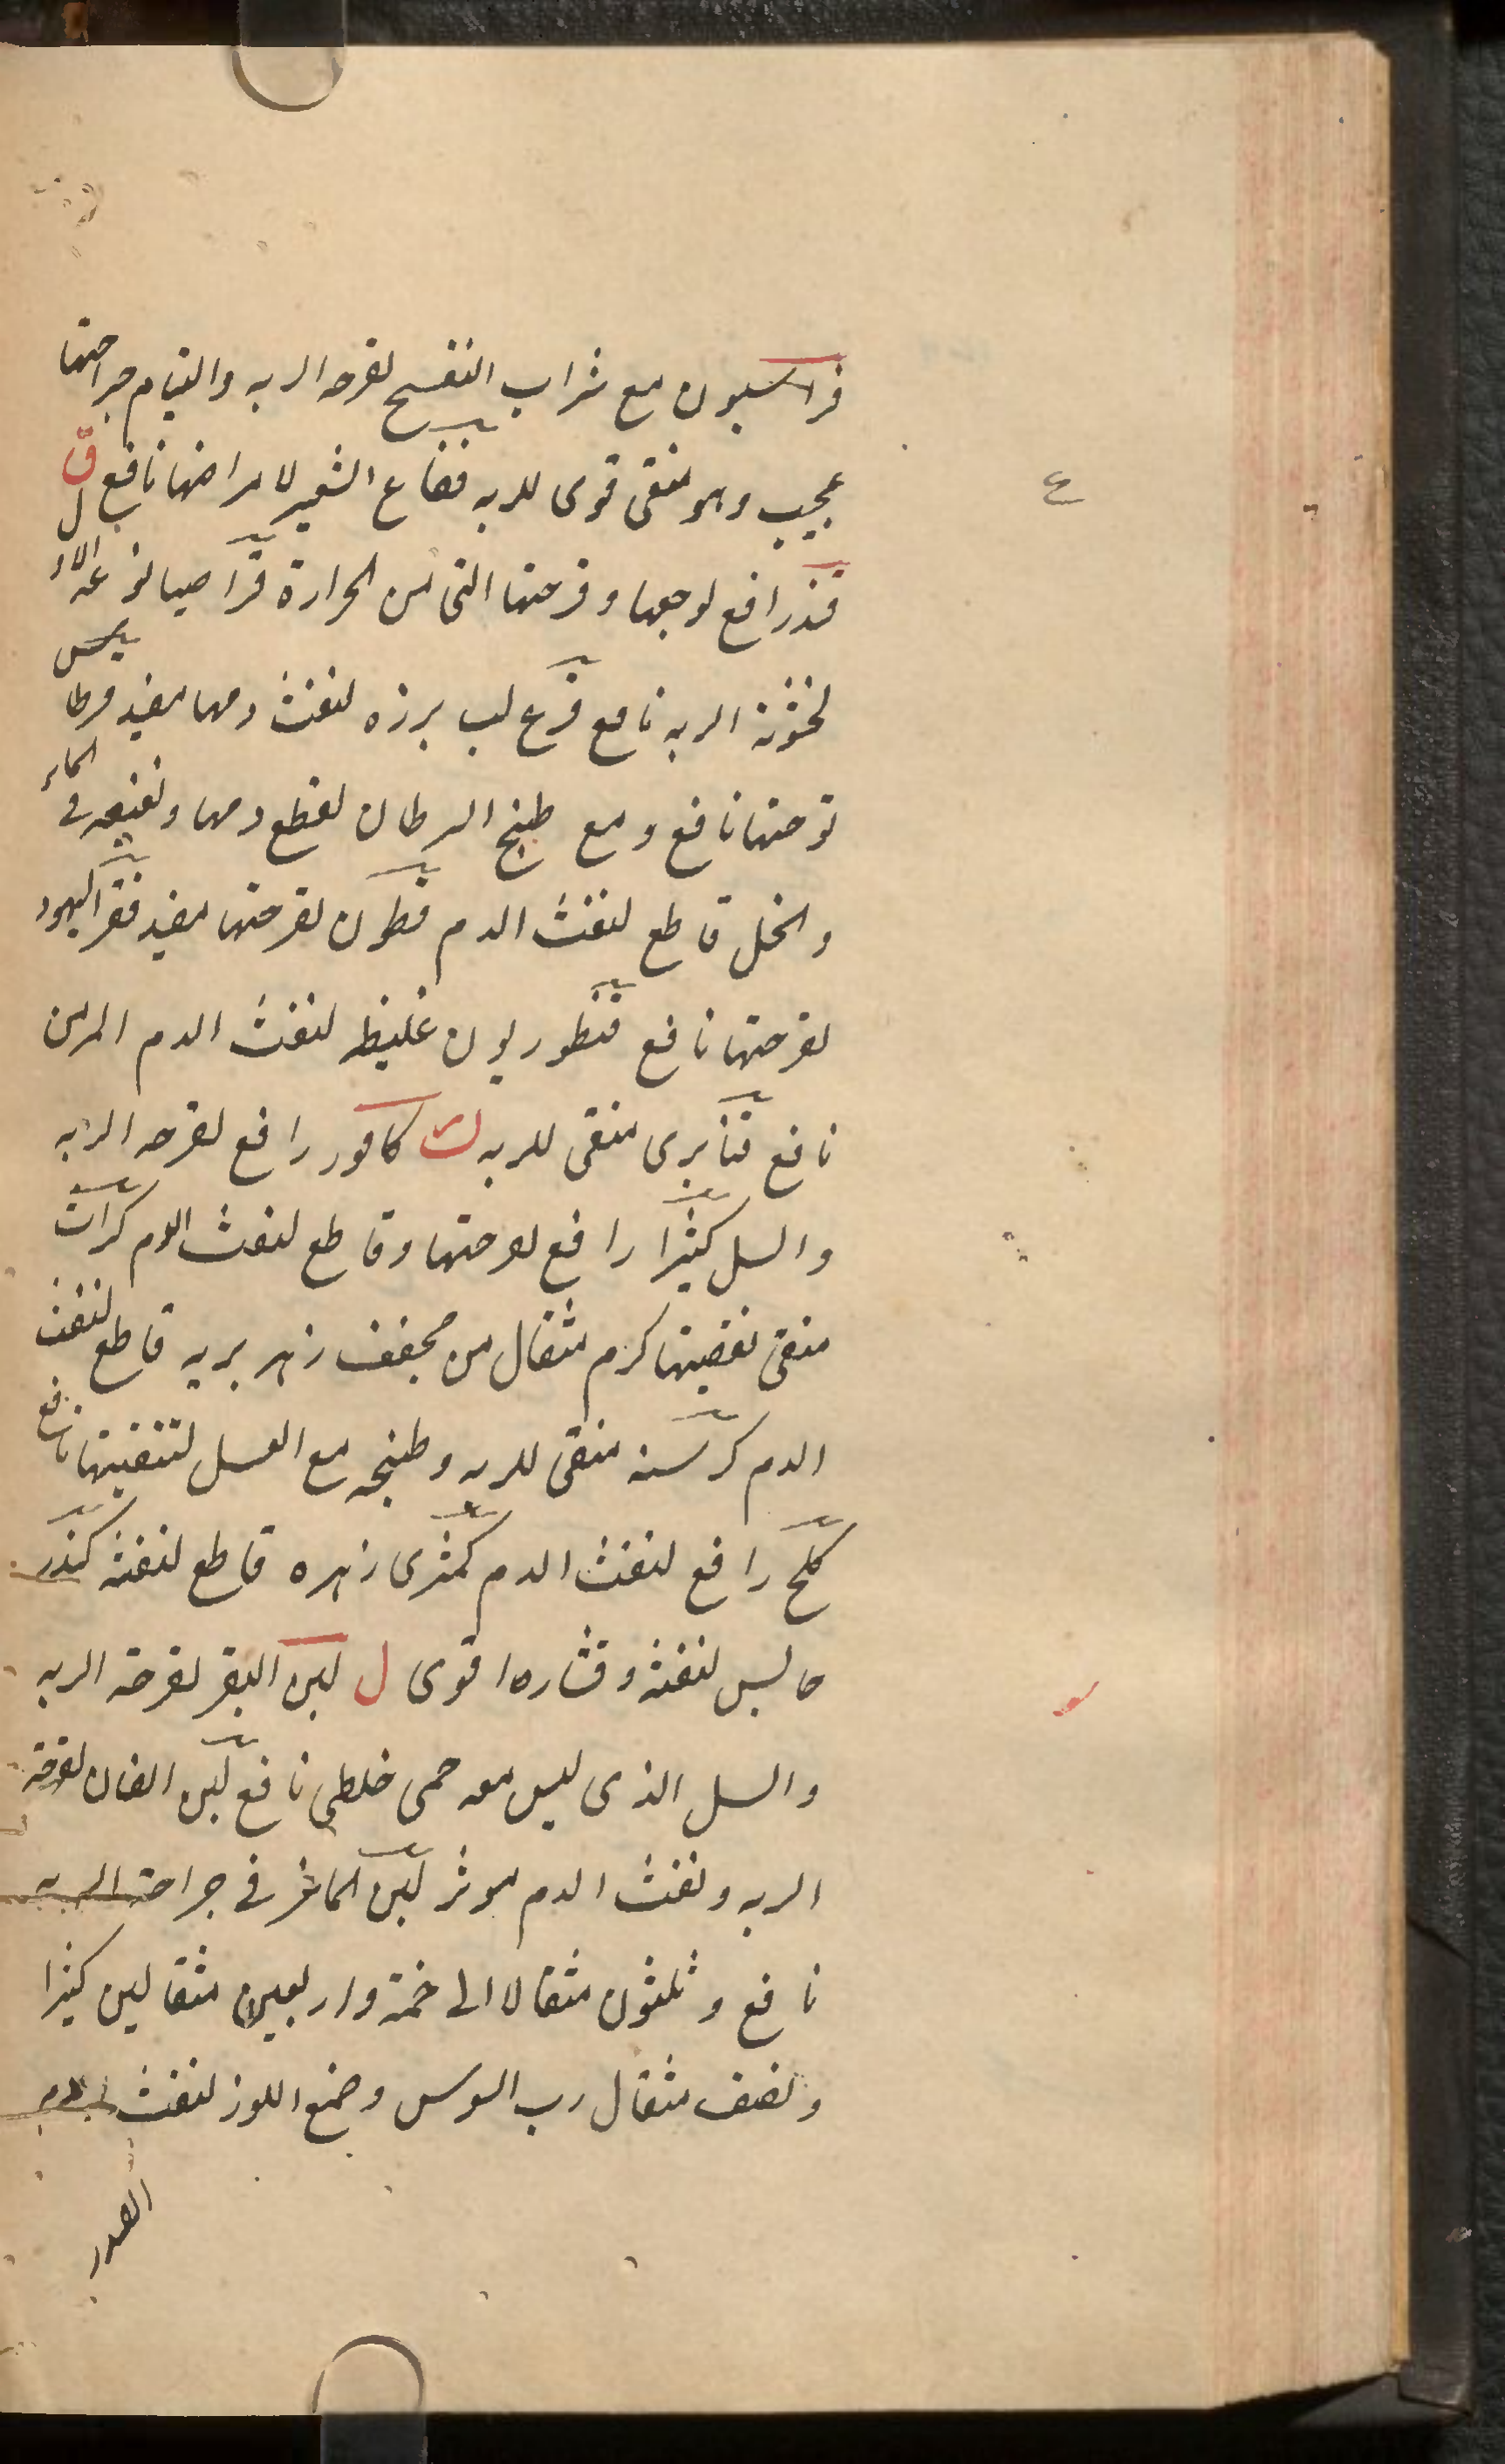 فراسيون مع شراب البنفسج لقرحه الريه والتيام جراحتها
عجيب وهو منقى قوى للريه فقاع الشعير لامراضها نافع ق
قند رافع لوجعها وقرحتها التى من الحرارة قراصيا
لخشونة الريه نافع قرع لب برزه لنفث دمها مفيد قرطا
قرحتها نافع ومع طبيخ السرطان لقطع دمها ونقيعه فى الماء
والخل قاطع لنفث الدم قطن لقرحتها مفيد قفر اليهود
لقرحتها نافع قنطوريون غليظ لنفث الدم المزمن
نافع قنابرى منقى للريه ك كافور رافع لقرحه الريه
والسل كثيرا رافع لقرحتها وقاطع لنفث الدم كراث
منقى كرم مثقال من مجفف زهر بريه قاطع لنفث
الدم كرسنه منقى للريه وطبيخه مع العسل لتنقيتها نافع
كلخ رافع لنفث الدم كمثرى زهره قاطع لنفثه كندر
حابس لنفثه وقشاره اقوى ل لبن البقر لقرحة الريه
والسل الذى ليس معه حمى خلطى نافع لبن الضان لقرحة
الريه ونفث الدم موثر لبن الماعز فى جراحة الريه
نافع وثلثون مثقالا الى خمسة واربعين مثقالين كثيرا
ونصف مثقال رب السوس وصمغ اللوز لنفث الدم
الصدر